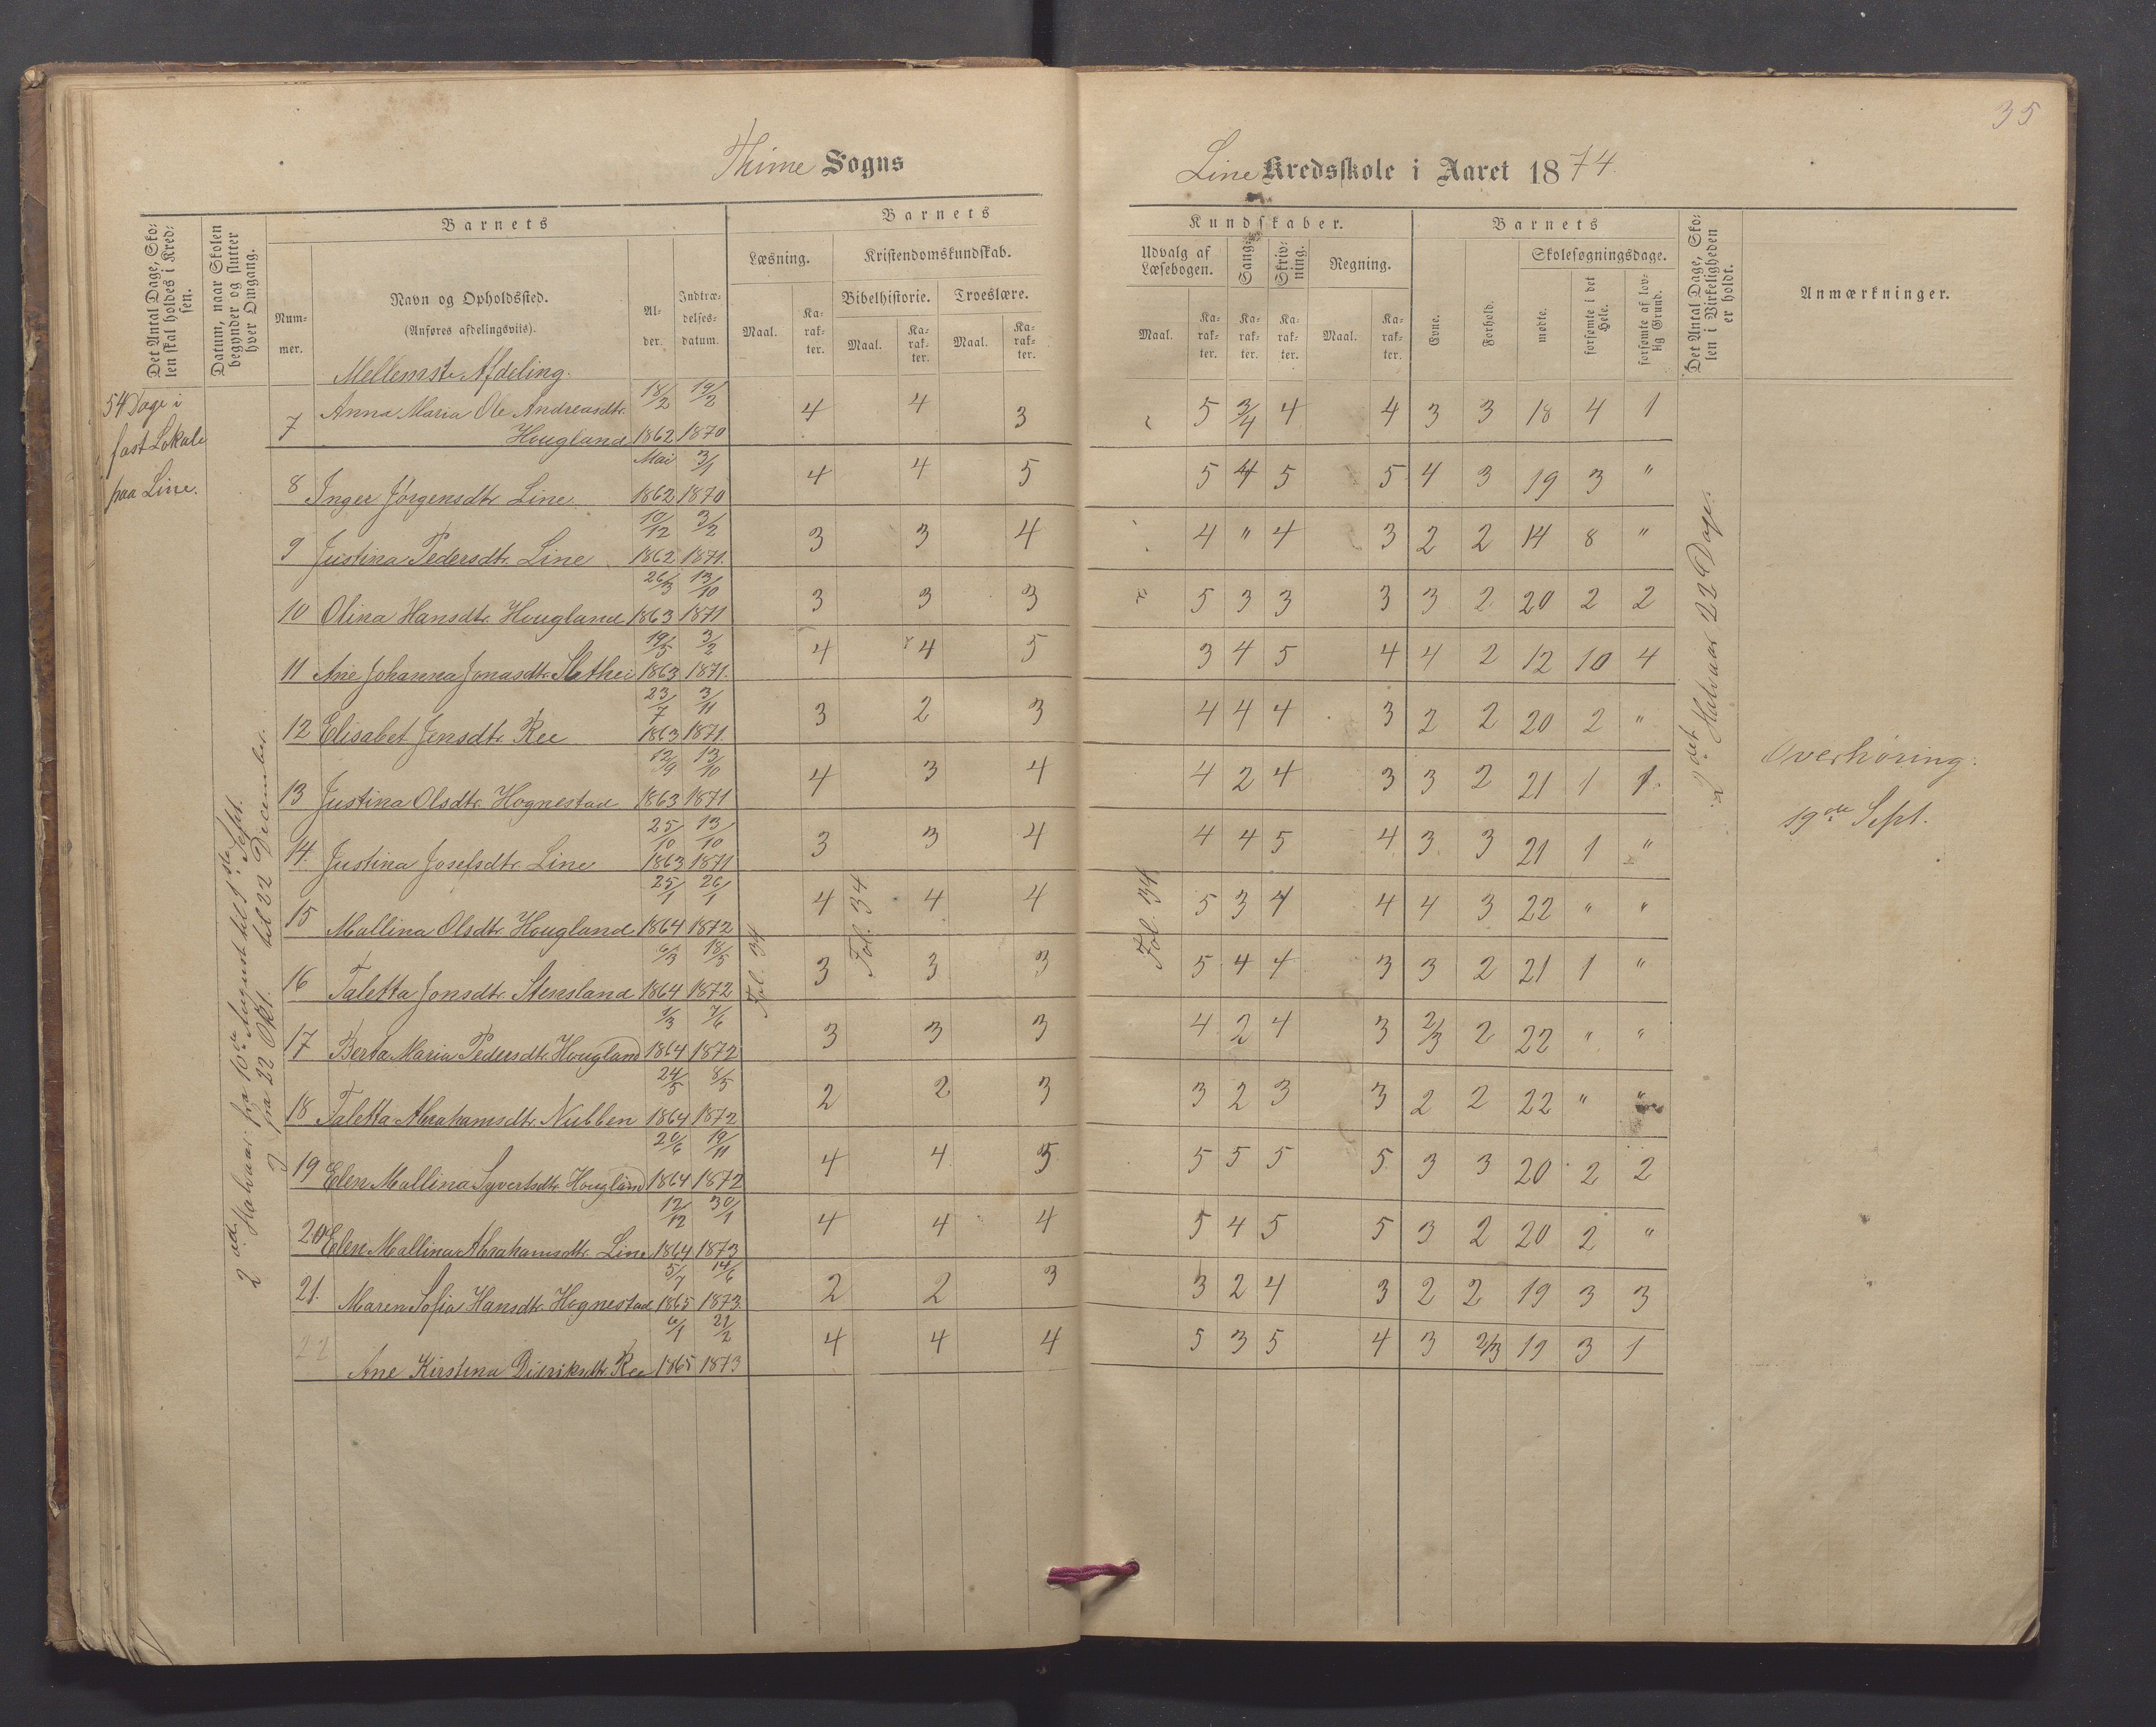 35
Thime Sogns
Line Kredsskole i Aaret 1874.
Det Antal Dage, Skolen skal holdes i Kredsen.
Datum, naar Skolen begynder og slutter hver Omgang.
Barnets
Nummer.
Navn og Opholdssted.
(Anføres afdelingsviis).
Alder.
Indtrædelsesdatum.
Barnets
Læsning.
Maal.
Karakter.
Kristendomskundskab.
Bibelhistorie.
Maal.
Karakter.
Troeslære.
Maal.
Karakter.
Kundskaber.
Udvalg af Læsebogen.
Maal.
Karakter.
Sang.
Karakter.
Skrivning.
Karakter.
Regning.
Maal.
Karakter.
Barnets
Evne.
Forhold.
Skolesøgningsdage.
mødte.
forsømte i det Hele.
forsømte af lovlig Grund.
Det Antal Dage, Skolen i Virkeligheden er holdt.
Anmærkninger.
54 Dage i
fast Lokale
paa Line.
2det Halvaar fra 10de August til 1ste Sept.
fra 22 Okt. til 22 December.
Mellemste Afdeling.
7 Anna Maria Ole Andreasdtr. Hougland 18/2 1862 19/2 1870 4 4 3 5 3/4 4 4 3 3 18 4 1
8 Inger Jørgensdtr. Line Mai 1862 3/1 1870 4 4 5 5 4 5 5 4 3 19 3 "
9 Justina Pedersdtr. Line 10/12 1862 3/2 1871. 3 3 4 4 " 4 3 2 2 14 8 "
10 Olina Hansdtr. Hougland 26/3 1863 13/10 1871 3 3 3 5 3 3 3 3 2 20 2 2
11 Ane Johanna Jonasdtr. 19/5 1863 3/2 1871. 4 4 5 3 4 5 4 4 2 12 10 4
12 Elisabet Jensdtr. Ree 23/7 1863 3/11 1871. 3 2 3 4 4 4 3 2 2 20 2 "
13 Justina Olsdtr. Hognestad 12/9 1863 13/10 1871 4 3 4 4 2 4 3 3 2 21 1 1.
14. Justina Josefsdtr. Line 25/10 1863 13/10 1871 3 3 4 4 4 5 4 3 3 21 1 "
15 Mallina Olsdtr. Hougland 25/1 1864 26/1 1872 4 4 4 5 3 4 4 4 3 22 " "
16 Taletta Jonsdtr. Stensland 6/3 1864 18/5 1872 3 3 3 5 4 4 3 3 2 21 1 "
17 Berta Maria Pedersdtr. Hougland 1/3 1864 7/6 1872 3 3 3 4 2 4 3 2/3 2 22 " "
18 Taletta Abrahamsdtr. Nubben 24/5 1864 8/5 1872 2 2 3 3 2 3 3 2 2 22 " "
19 Elen Mallina Syvertsdtr. Hougland 20/6 1864 19/11 1872 4 4 5 5 5 5 5 3 3 20 2 2
20 Elen Mallina Abrahamsdtr. Line 12/12 1864 30/1 1873 4 4 4 5 4 5 5 3 2 20 2 "
21. Maren Sofia Hansdtr. Hognestad 5/7 1865 14/6 1873. 2 2 3 3 2 4 3 2 2 19 3 3
22 Ane Kirstina Didriksdtr. Ree 6/1 1865 21/2 1873 4 4 4 5 3 5 4 3 2/3 19 3 1
Fol. 34
Fol. 34
Fol. 34.
2det Halvaar 22 Dage.
Overhøring.
19de Sept.